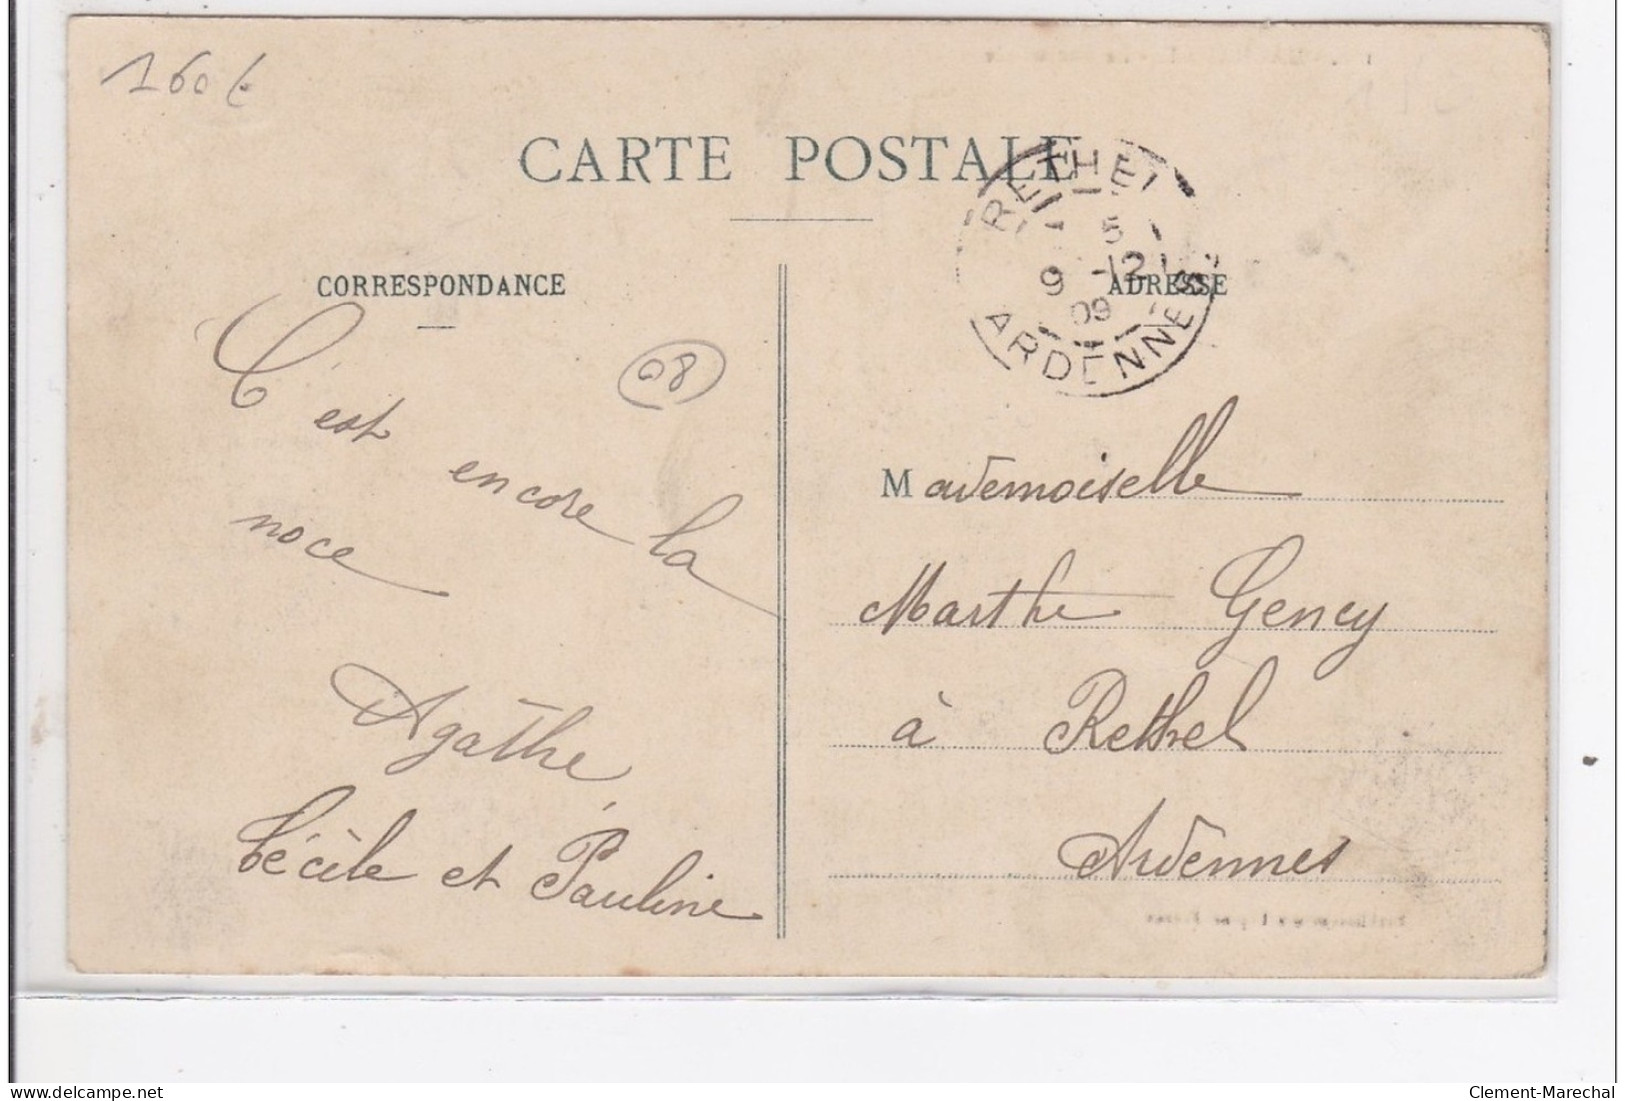 160 €
CARTE POSTALE
RETHEL
5
9 -12
09
ARDENNES
CORRESPONDANCE
ADRESSE
C'est
encore la
noce
08
Agathe,
Cécile et Pauline
Mademoiselle
Marthe Gency
à Rethel
Ardennes
delcampe.net
Clement-Marechal